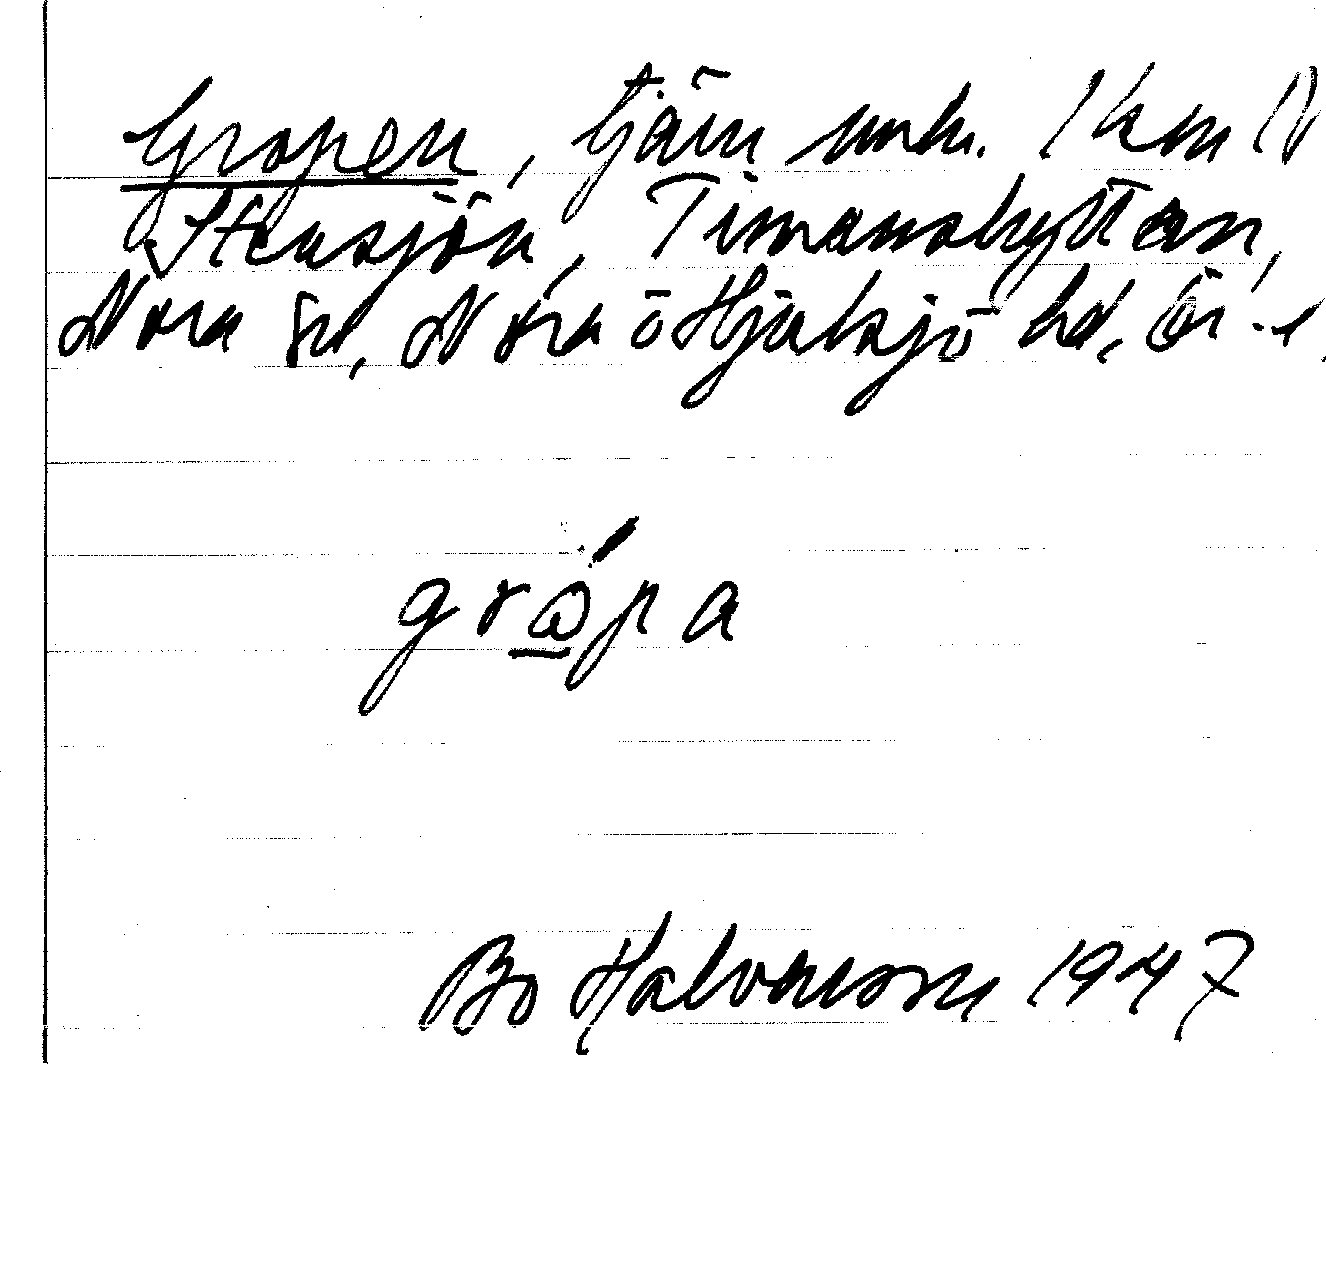 Gropen, tjärn umk. 1 km N
Stensjön, Timanshyttan,
Nora sn, Nora o Hjulsjö hd, Ör.
gråpa
Bo Halvarsson 1947